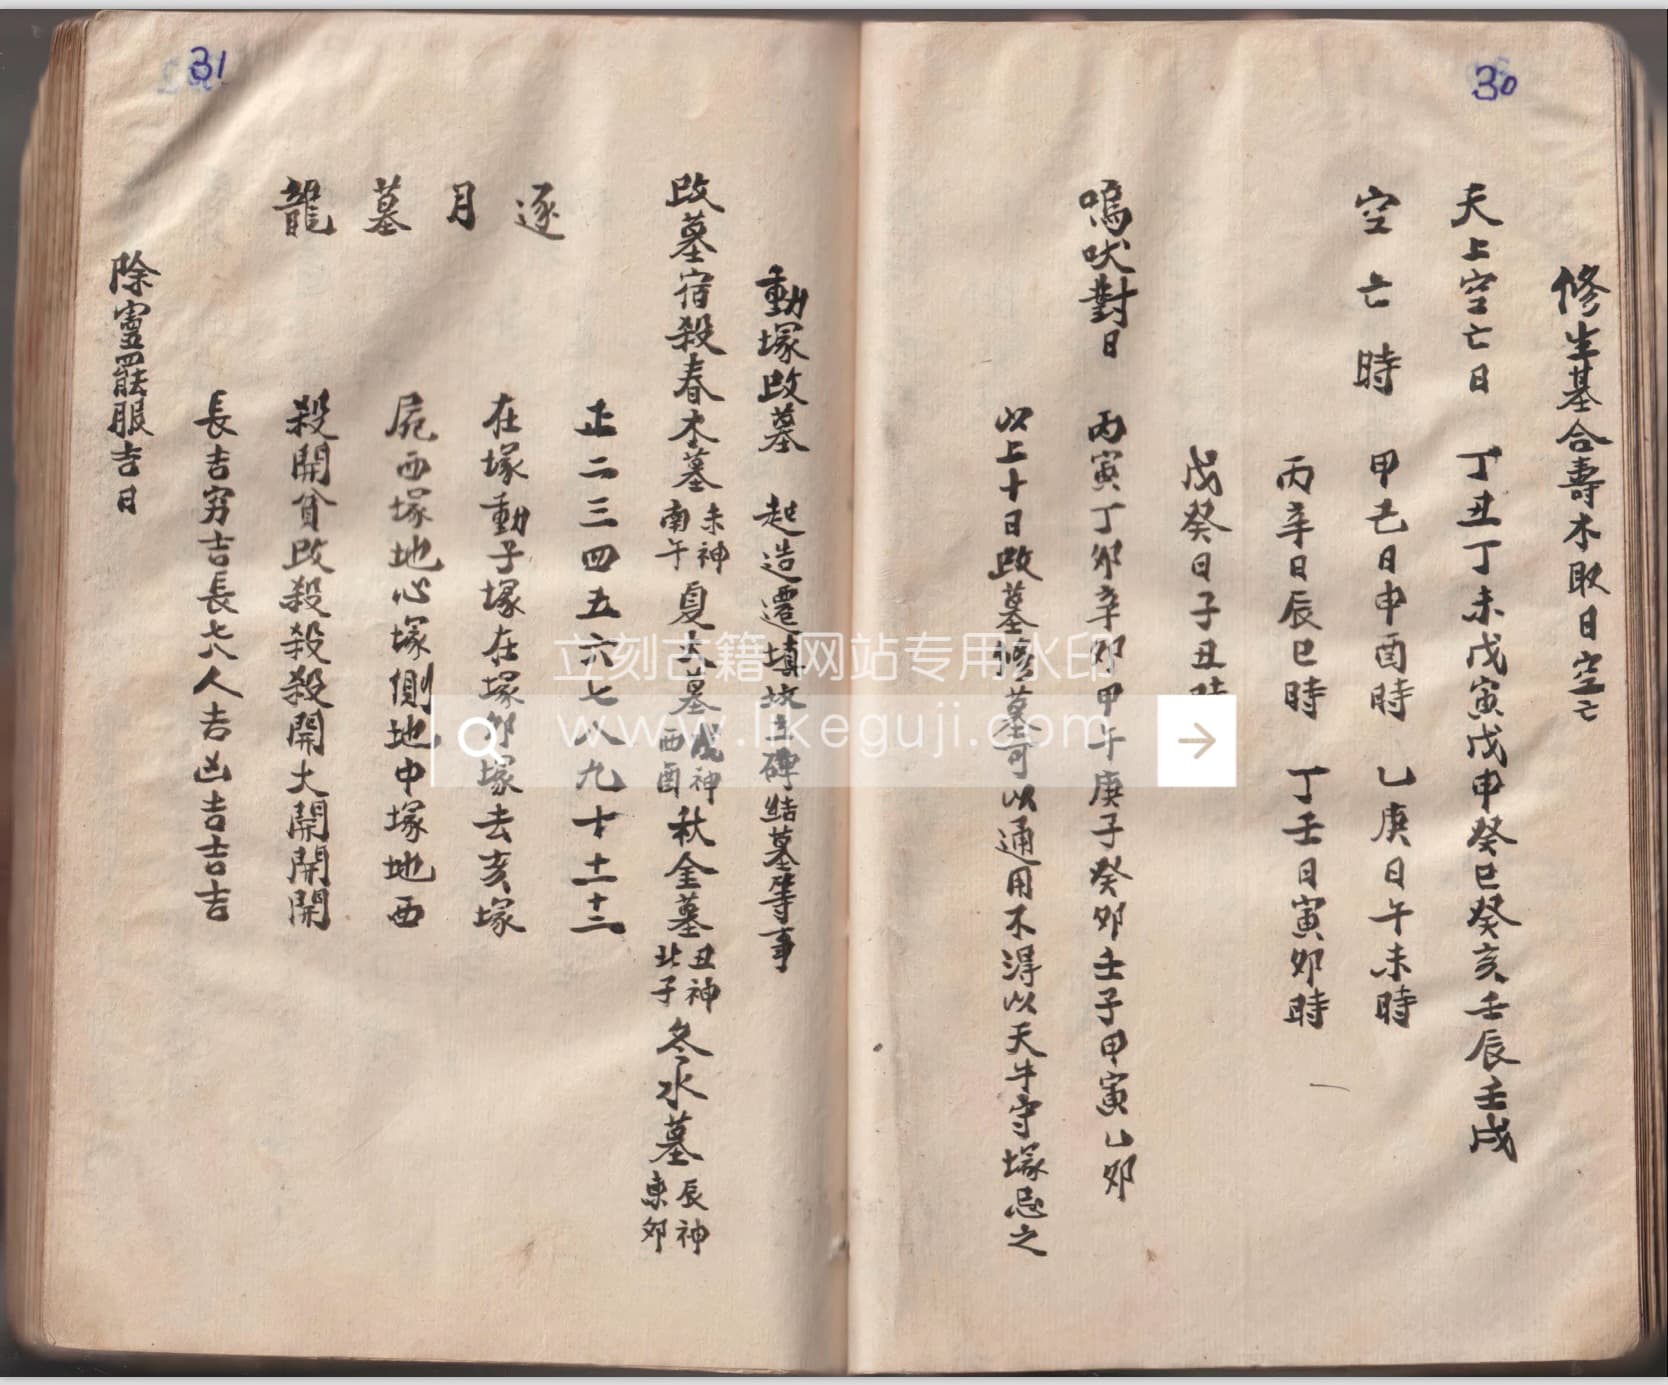 30
修生基合壽木取日空亡
天上空亡日 丁丑丁未戊寅戊申癸巳癸亥壬辰壬戌
空亡時 甲己日申酉時 乙庚日午未時
丙辛日辰巳時 丁壬日寅卯時
戊癸日子丑時
鳴吠對日 丙寅丁卯辛卯甲午庚子癸卯壬子甲寅乙卯
以上十日改墓修墓可以通用不得以天牛守塚忌之
31
動塚改墓 起造遷填坟立碑結墓等事
改墓宿殺春木墓未神南午夏火墓戌神西酉秋金墓丑神北子冬水墓辰神東卯
逐月墓龍
正二三四五六七八九十十一十二
在塚動子塚在塚卯塚去亥塚
屍西塚地心塚側地中塚地西
殺開貧改殺殺殺開大開開開
長吉窮吉長七八人吉凶吉吉吉
除靈罷服吉日
立刻古籍-网站专用水印
www.likeguji.com